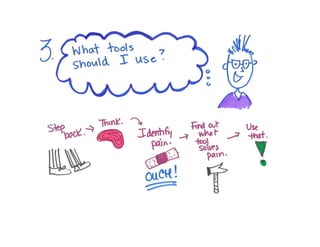 3.
What tools
should I use?
Step
back.
Think.
Identify
pain.
OUCH!
Find out
what
tool
solves
pain.
Use
that.
!